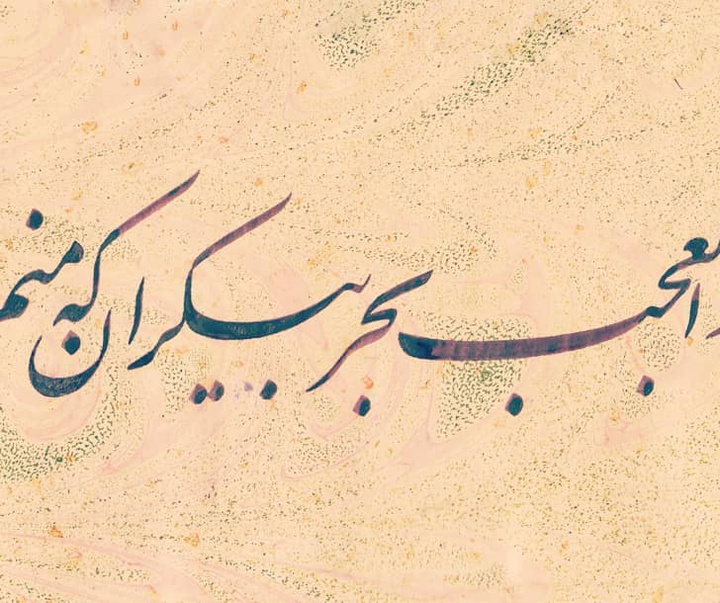 العجب بحر بیکران که منم